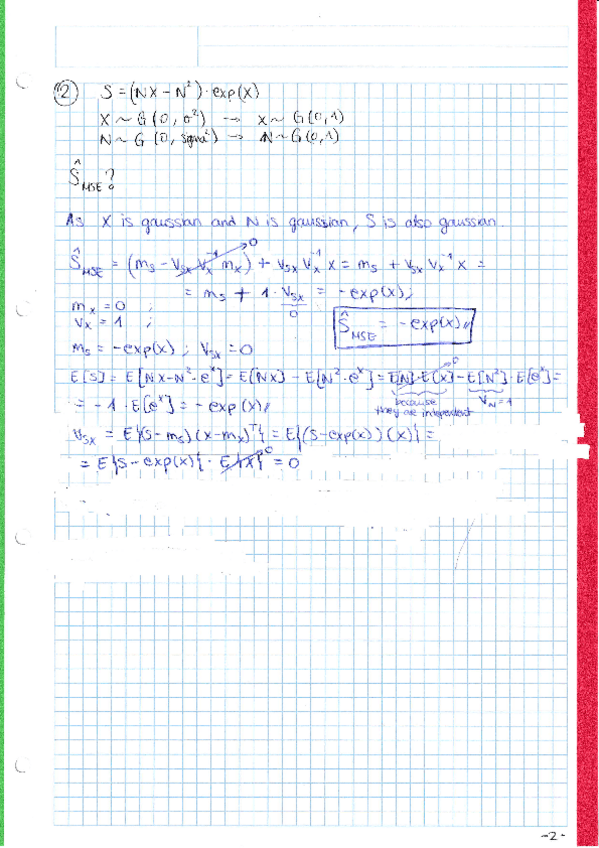 ② S = (NX − N²)·exp(x)
X ~ G(0, σ²) → x ~ G(0,1)
N ~ G(0, sigma²) → N ~ G(0,1)
Ŝ_MSE?
As X is gaussian and N is gaussian, S is also gaussian.
Ŝ_MSE = (m_s − V_sx V_x⁻¹ m_x)→0 + V_sx V_x⁻¹ x = m_s + V_sx V_x⁻¹ x =
= m_s + 1·V_sx = −exp(x);
0
m_x = 0 ;
V_x = 1 ;
Ŝ_MSE = −exp(x)//
m_s = −exp(x) ; V_sx = 0
E[S] = E[NX−N²·eˣ] = E[NX] − E[N²·eˣ] = E[N]·E[X]→0 − E[N²]·E[eˣ] =
because they are independent
V_N = 1
= −1·E[eˣ] = −exp(x)//
V_sx = E{(S−m_s)(x−m_x)ᵀ} = E{(S−exp(x))(x)} =
= E{S−exp(x)}·E{X}→0 = 0
-2-